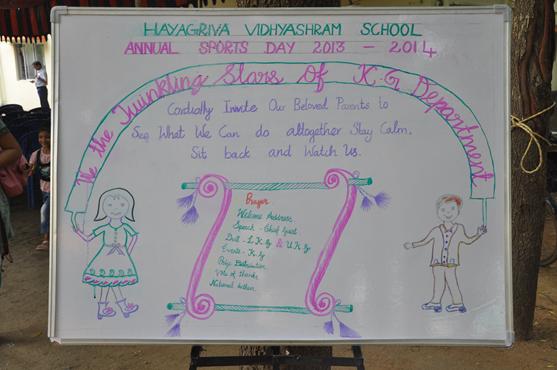 HAYAGRIVA VIDHYASHRAM SCHOOL
ANNUAL SPORTS DAY 2013 - 2014
We the Twinkling Stars Of K.G Department
Cordially Invite Our Beloved Parents to
See What We Can do altogether Stay Calm,
Sit back and Watch Us.
Prayer
Welcome Address
Speech - Chief Guest
Drill - L.K.G & U.K.G
Events - K.G
Prize Distribution
Vote of thanks
National Anthem